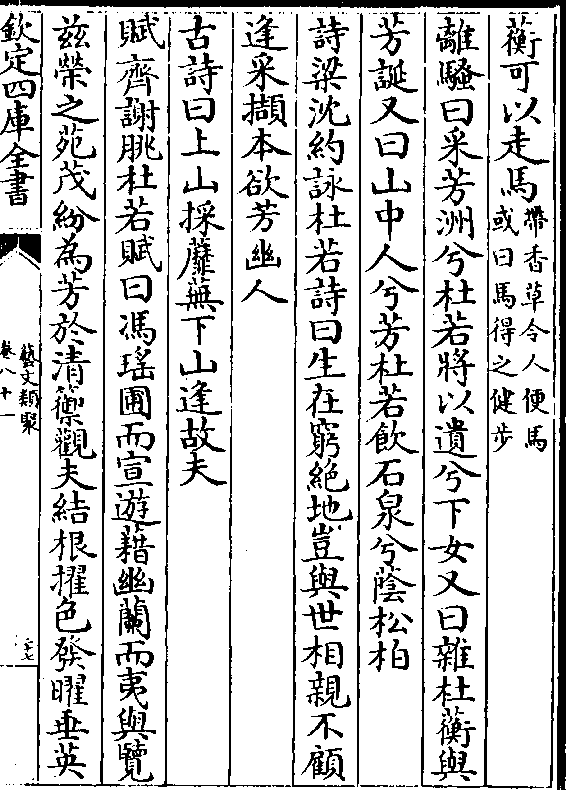 蘅可以走馬帶香草令人便馬
或曰馬得之健步
離騷曰采芳洲兮杜若將以遺兮下女又曰雜杜蘅與
芳誕又曰山中人兮芳杜若飲石泉兮蔭松柏
詩梁沈約詠杜若詩曰生在窮絶地豈與世相親不顧
逢采擷本欲芳幽人
古詩曰上山採蘼蕪下山逢故夫
賦齊謝朓杜若賦曰馮瑤圃而宣遊藉幽蘭而夷與覽
兹榮之苑茂紛為芳於清籞觀夫結根擢色發曜垂英
欽定四庫全書
藝文類聚
卷八十一
二十七